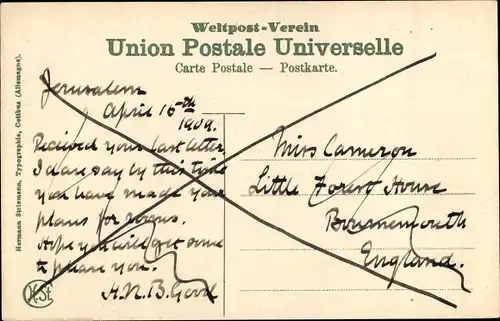 Weltpost-Verein
Union Postale Universelle
Carte Postale — Postkarte.
Hermann Striemann, Typographia, Cottbus (Allemagne).
Jerusalem
April 16th
1909.
Recieved your last letter
I dare say by this time
you have made your
plans for
Hope you will get some
to please you.
H.N.B. Good
Miss Cameron
Little Forest House
Bournemouth
England.